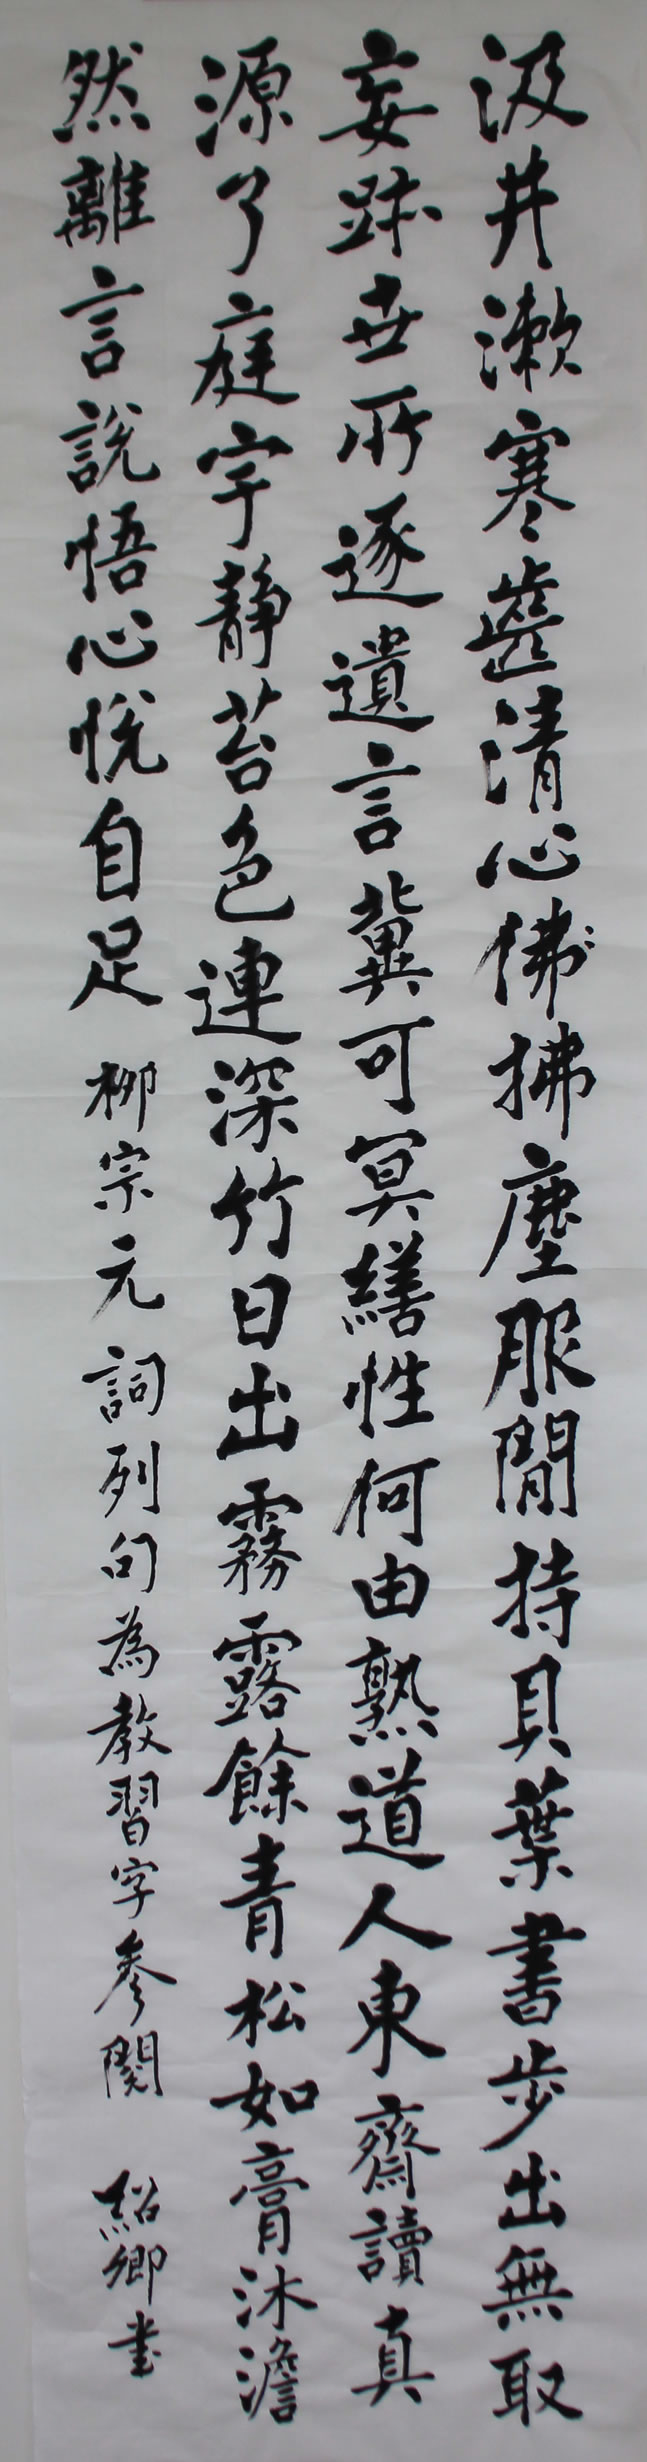 汲井漱寒齒清心佛拂塵服閒持貝葉書步出無取
妄跡世所逐遺言冀可冥繕性何由熟道人東齋讀真
源了庭宇靜苔色連深竹日出霧露餘青松如膏沐澹
然離言說悟心悅自足 柳宗元詞列句為教習字參閱 紹卿書